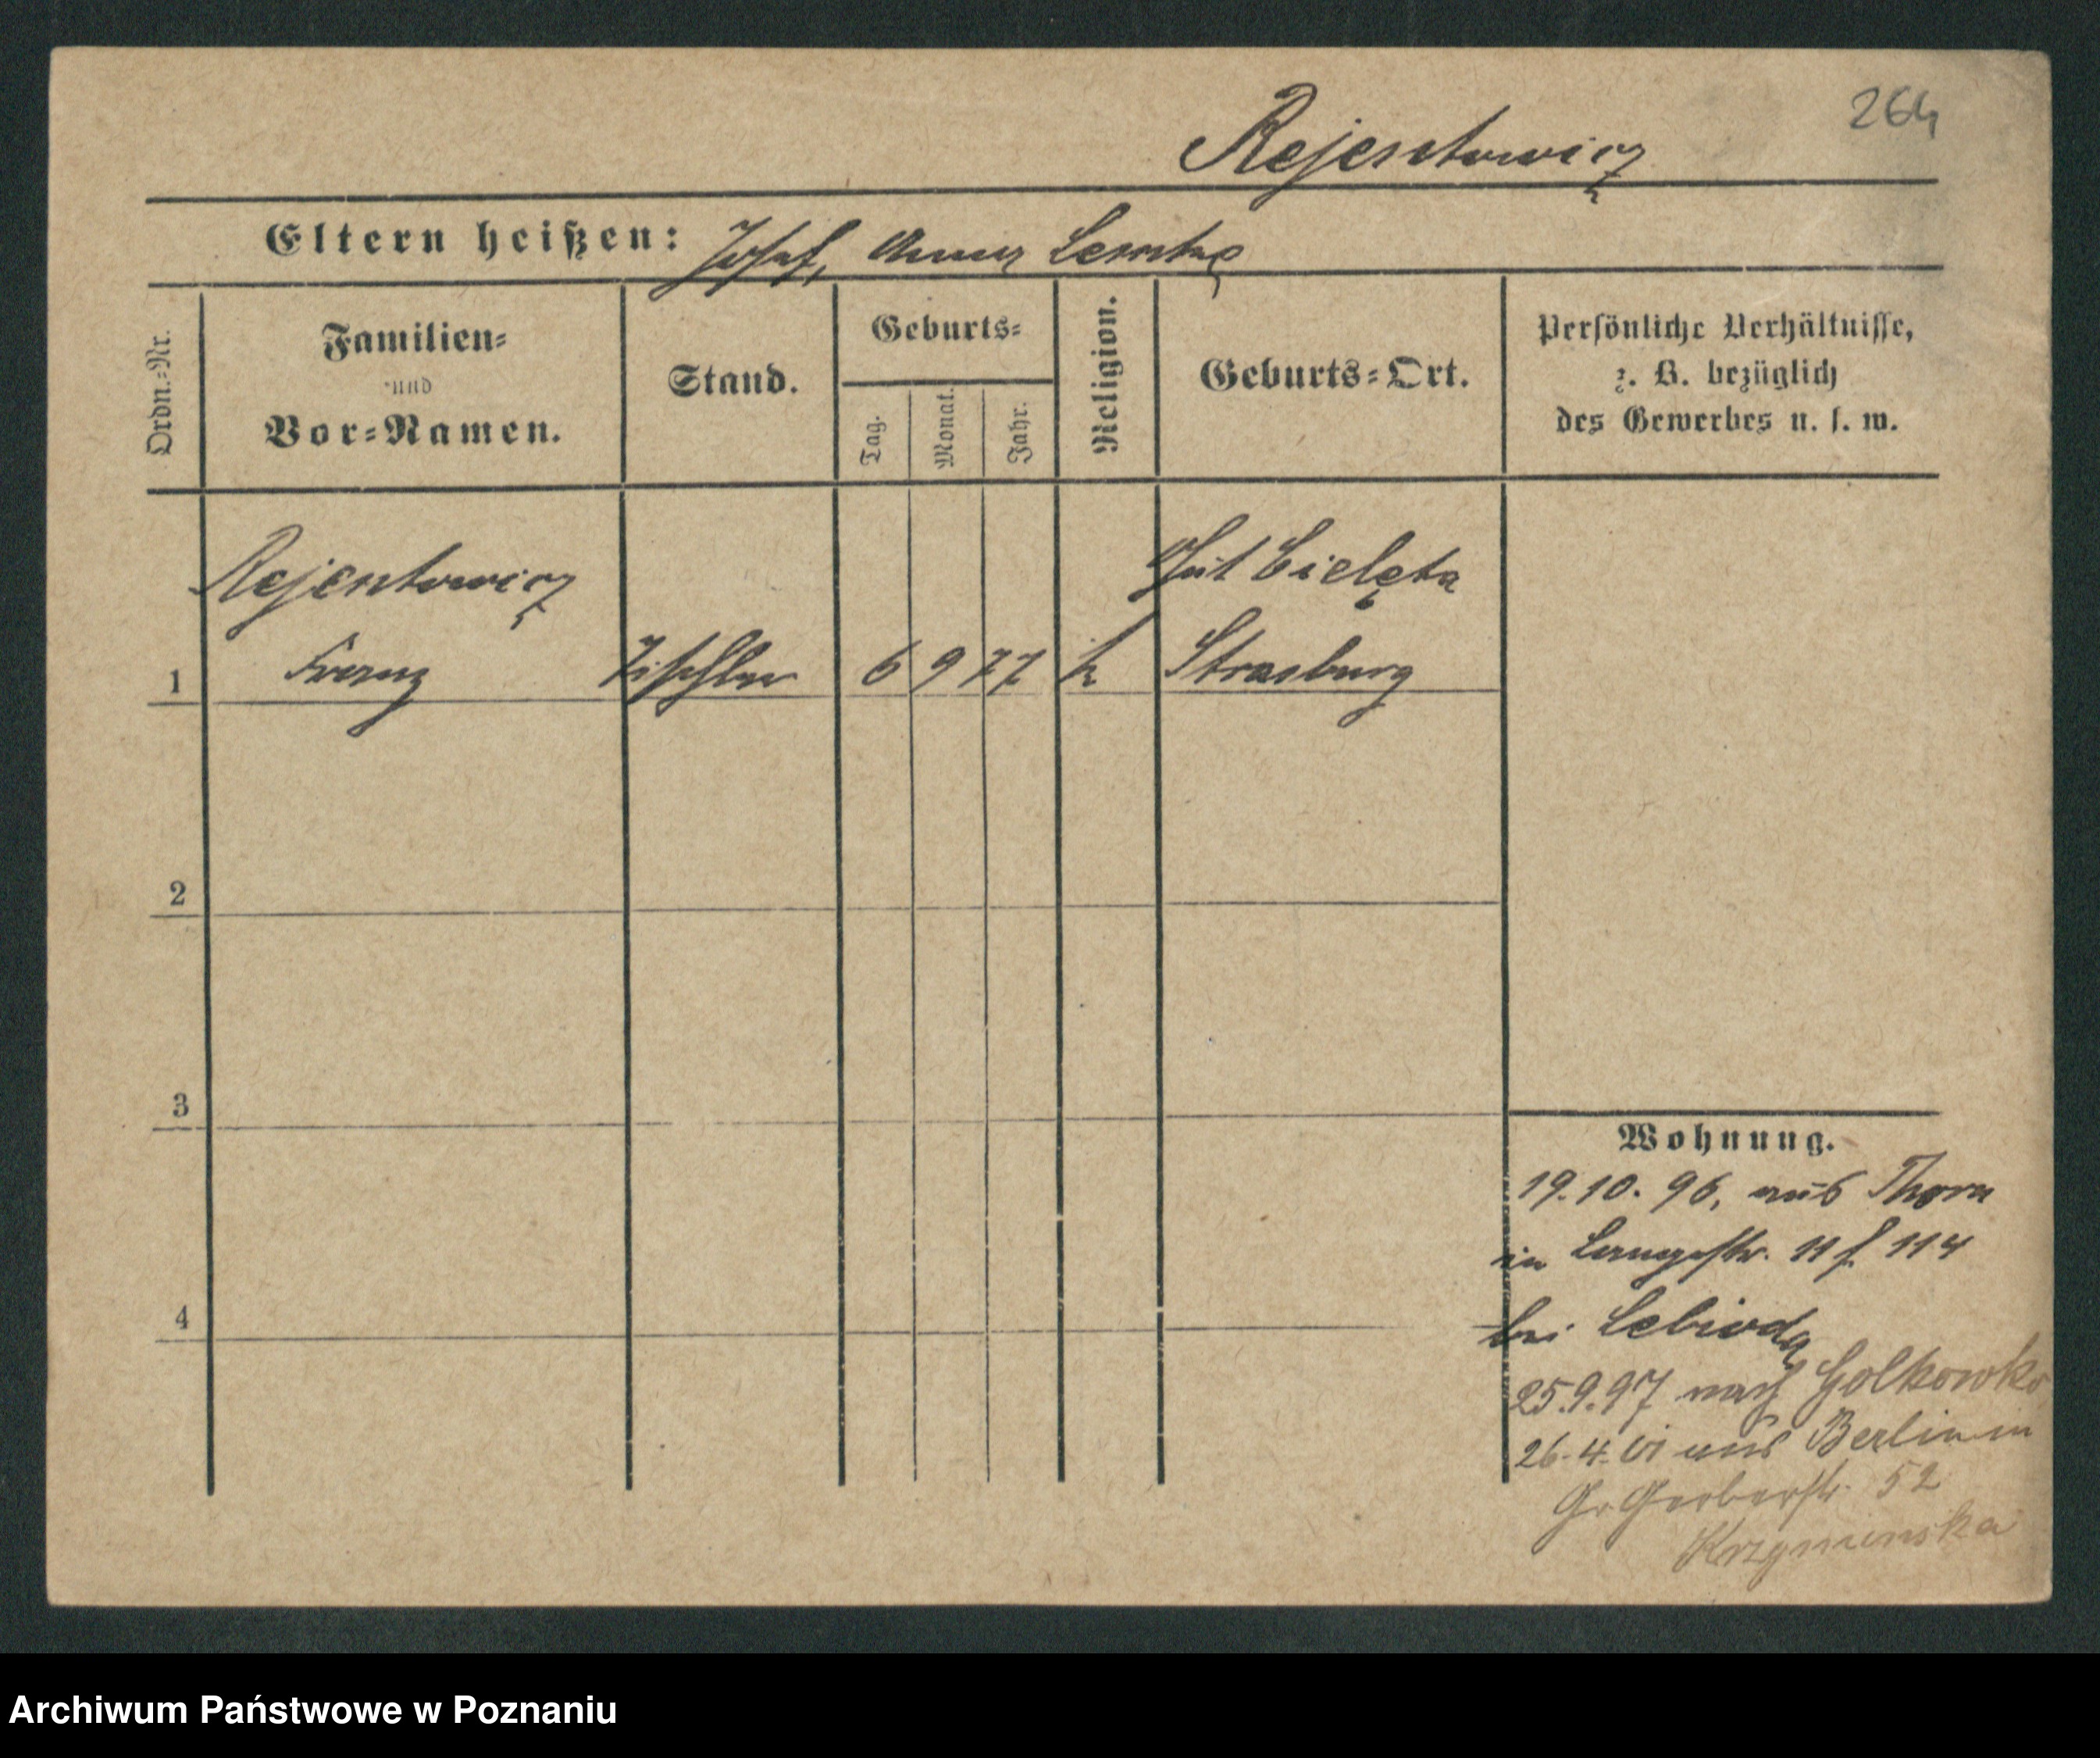 264
Rejentowicz
Eltern heißen: Josef, Anna Lemke
Ordn.-Nr.
Familien-
und
Vor-Namen.
Stand.
Geburts-
Tag.
Monat.
Jahr.
Religion.
Geburts-Ort.
Persönliche Verhältnisse,
z. B. bezüglich
des Gewerbes u. s. w.
Rejentowicz
Gut Cielęta
1 Franz Tischler 6 9 77 k Strasburg
2
3
4
Wohnung.
19.10.96, aus Thorn
in Langestr. 11 f. 114
bei Lebioda
25.9.97 nach Golkowko
26.4.01 aus Berlin in
Gr Gerberstr. 52
Archiwum Państwowe w Poznaniu